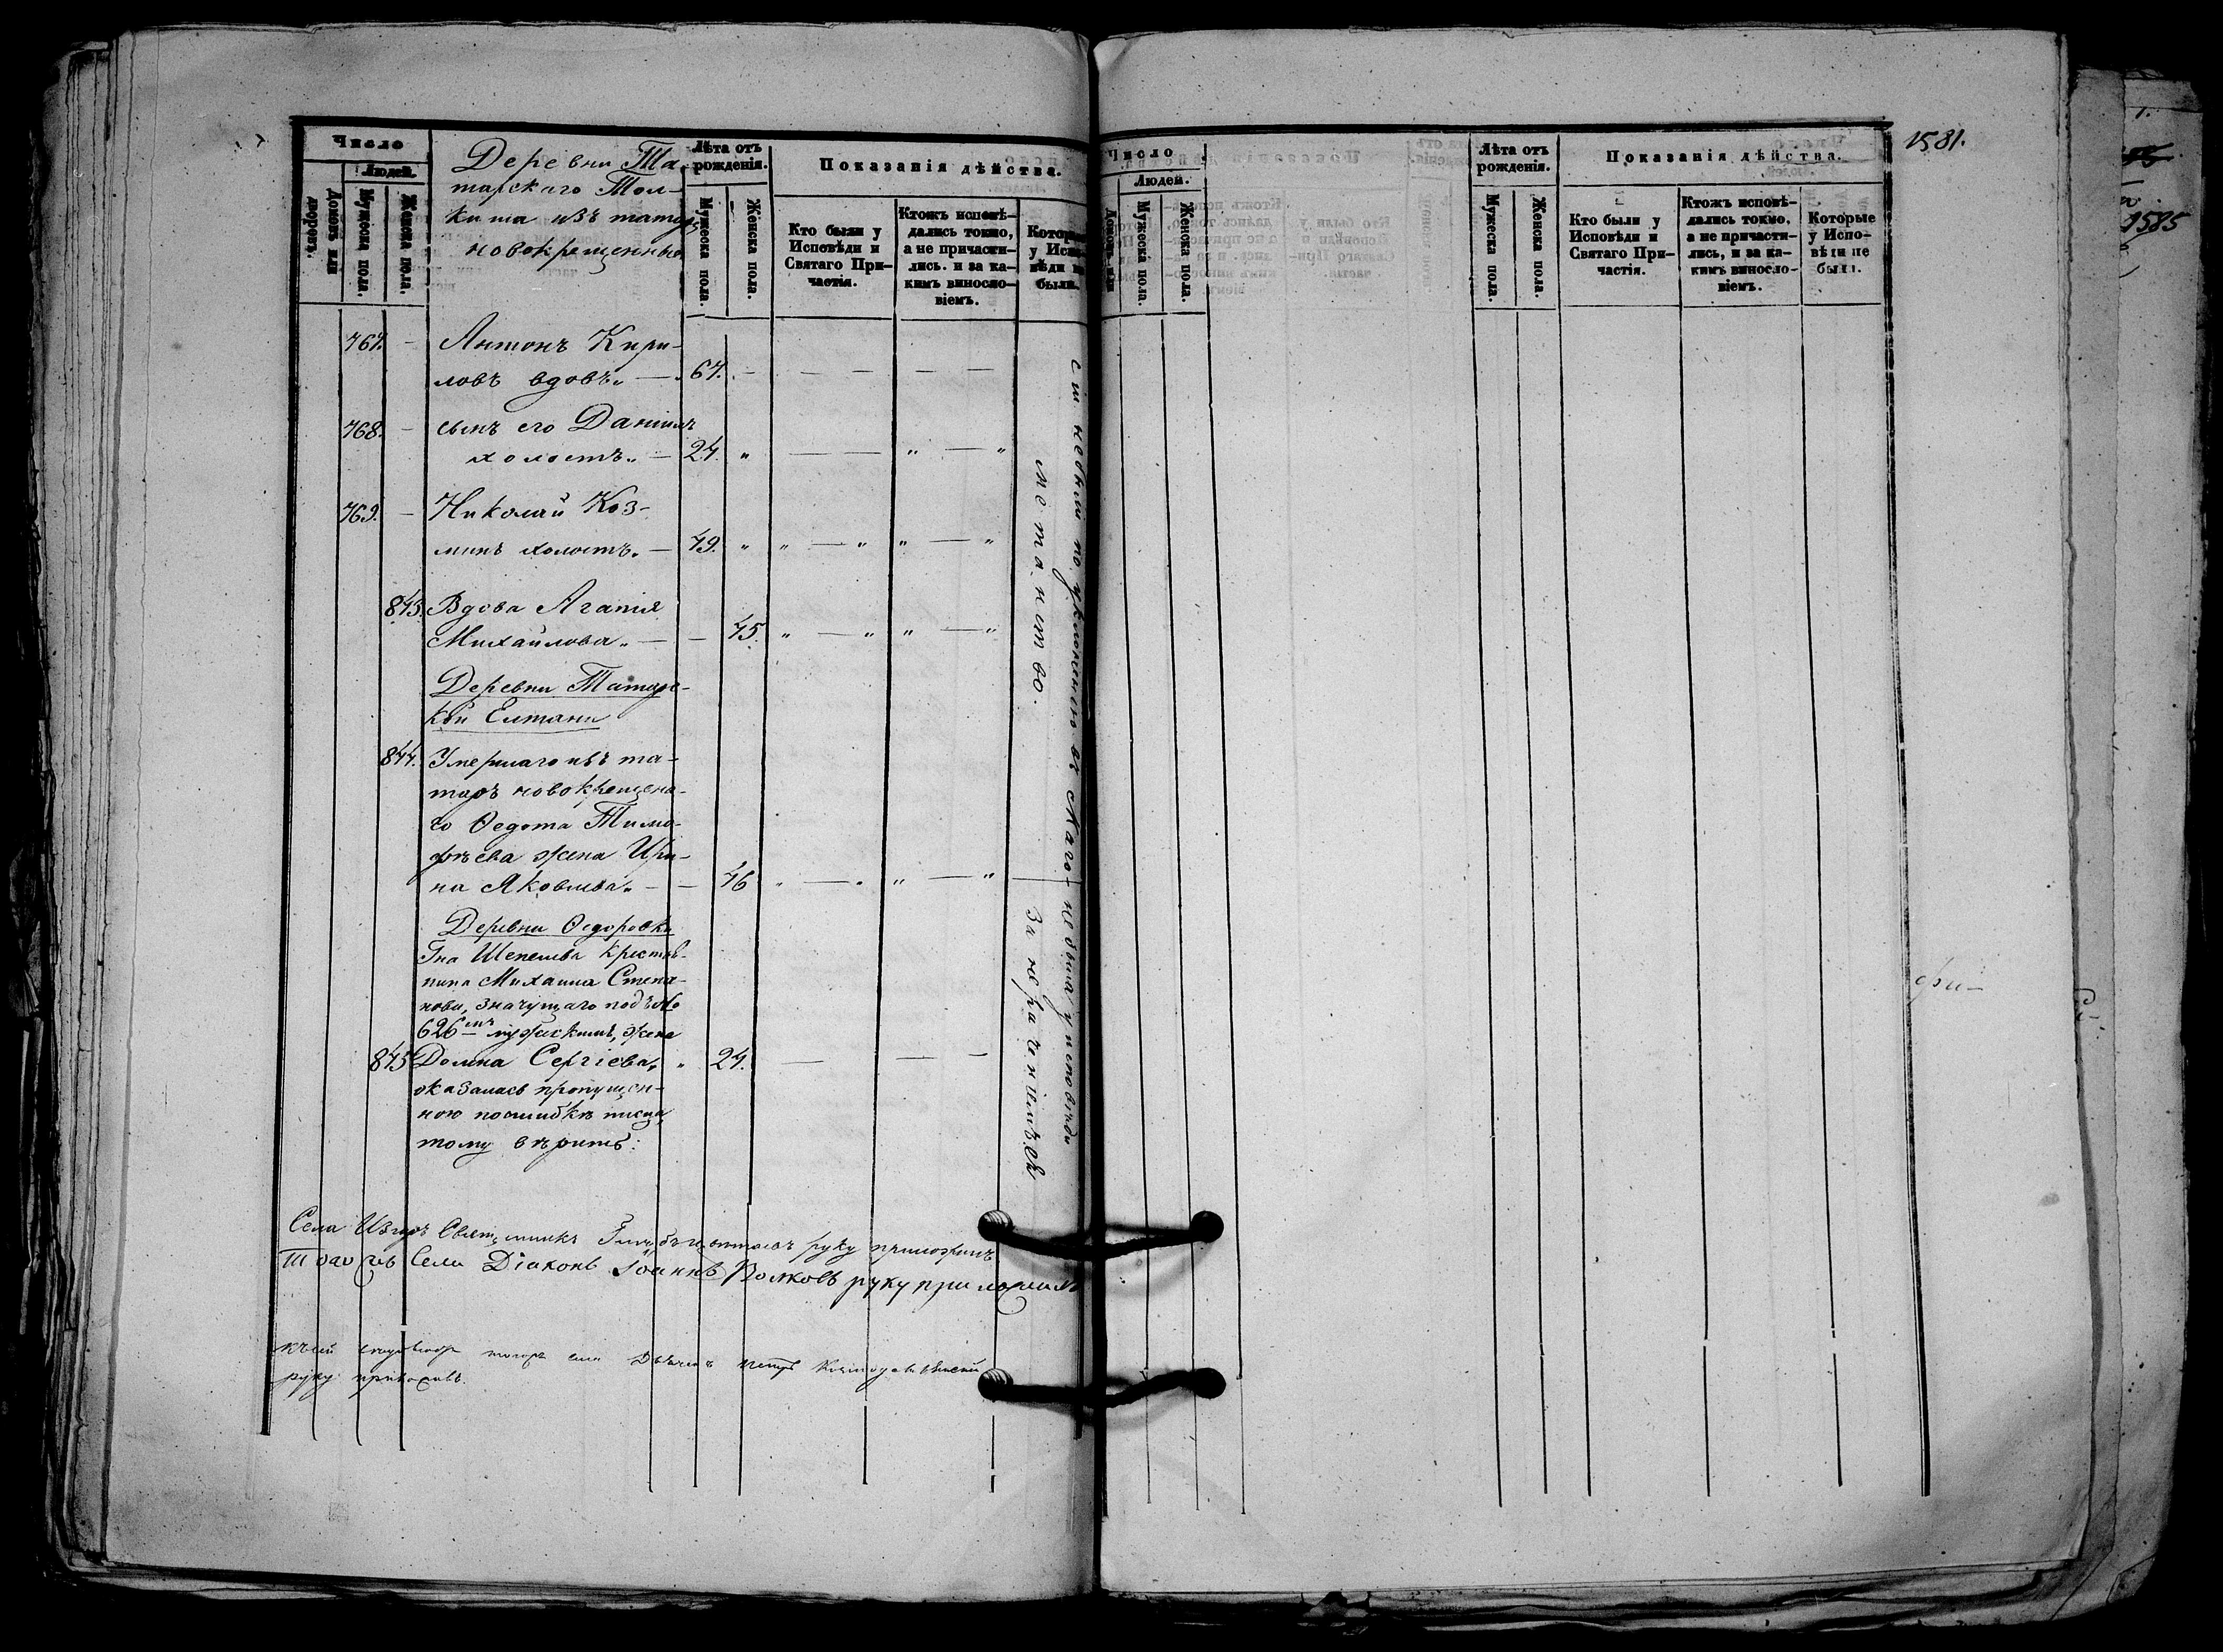 Число
Людей.
Домовъ или дворовъ.
Мужеска пола.
Женска пола.
Деревни Та-
тарскаго Тол-
киша изъ татаръ
новокрещенныя
Лѣта отъ
рожденія.
Мужеска пола.
Женска пола.
Показанія дѣйства.
Кто были у
Исповѣди и
Святаго При-
частія.
Ктожъ исповѣ-
дались токмо,
а не причасти-
лись. и за ка-
кимъ винοсло-
віемъ.
Которые
у Испо-
вѣди не
были.
767. - Антонъ Кири-
ловъ вдовъ. — 67. -
768. - сынъ его Даніилъ
холостъ. — 24. "
769. - Николай Коз-
минъ холостъ. — 49. "
843. Вдова Агапія
Михайлова. — - 45.
Деревни Татарс-
кой Елтани
844. Умершаго изъ та-
таръ новокрещена-
го Ѳедота Тимо-
фѣева жена Ири-
на Яковлева. — - 46
Деревни Ѳедоровки
Гна Шепелева крестья-
нина Михаила Степа-
нова, значущаго подъ №
626мъ мужскимъ, жена
845 Домна Сергіева, " 24.
оказалась пропущен-
ною поошибкѣ писца,
тому вѣрить:
сіи небыли по уклоненію въ Маго-
метанство.
не была у исповѣди
За нерачениемъ
Села Священникъ руку приложилъ
Тогожъ Села Діаконъ Іоаннъ Волковъ руку приложилъ
къ сей тогожъ села Дьячекъ Петръ
руку приложилъ.
1581.
Число
Людей.
Домовъ или
Мужеска пола.
Женска пола.
Лѣта отъ
рожденія.
Мужеска пола.
Женска пола.
Показанія дѣйства.
Кто были у
Исповѣди и
Святаго При-
частія.
Ктожъ исповѣ-
дались токмо,
а не причасти-
лись, и за ка-
кимъ виносло-
віемъ.
Которые
у Испо-
вѣди не
были.